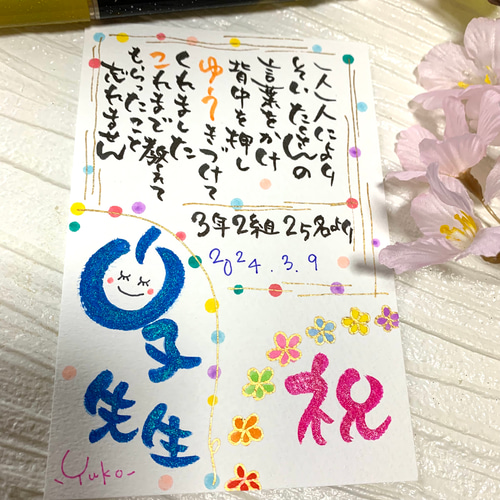 一人一人により
そいたくさんの
言葉をかけ
背中を押し
ゆうきづけて
くれました
これまで教えて
もらったこと
忘れません
3年2組25名より
2024.3.9
子
先生
祝
-Yuko-